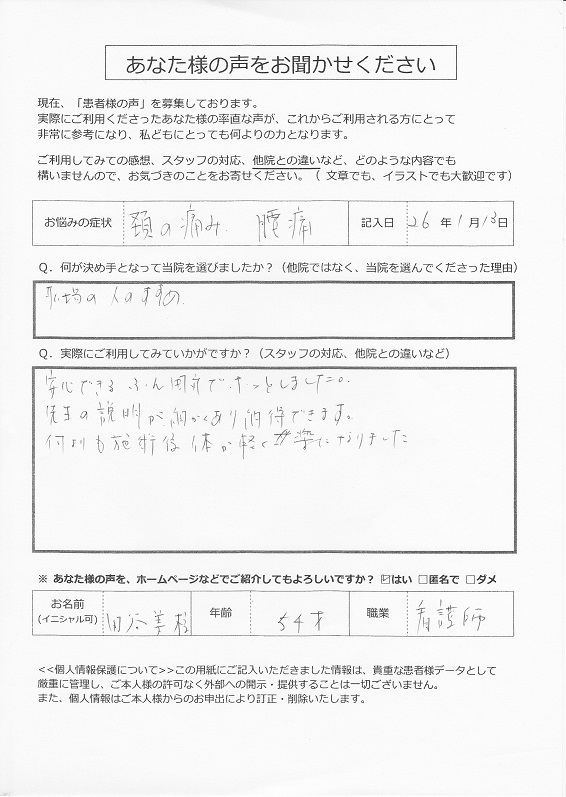 あなた様の声をお聞かせください
現在、「患者様の声」を募集しております。
実際にご利用くださったあなた様の率直な声が、これからご利用される方にとって
非常に参考になり、私どもにとっても何よりの力となります。
ご利用してみての感想、スタッフの対応、他院との違いなど、どのような内容でも
構いませんので、お気づきのことをお寄せください。（ 文章でも、イラストでも大歓迎です）
お悩みの症状 頚の痛み. 腰痛 記入日 26 年 1 月 13 日
Q．何が決め手となって当院を選びましたか？（他院ではなく、当院を選んでくださった理由）
職場の人のすすめ.
Q．実際にご利用してみていかがですか？（スタッフの対応、他院との違いなど）
安心できるふん囲気でホッとしました。
先生の説明が細かくあり納得できます。
何よりも施術後 体が軽く 楽になりました
※ あなた様の声を、ホームページなどでご紹介してもよろしいですか？ ☑はい □匿名で □ダメ
お名前 年齢 54才 職業 看護師
(イニシャル可)
<<個人情報保護について>>この用紙にご記入いただきました情報は、貴重な患者様データとして
厳重に管理し、ご本人様の許可なく外部への開示・提供することは一切ございません。
また、個人情報はご本人様からのお申出により訂正・削除いたします。